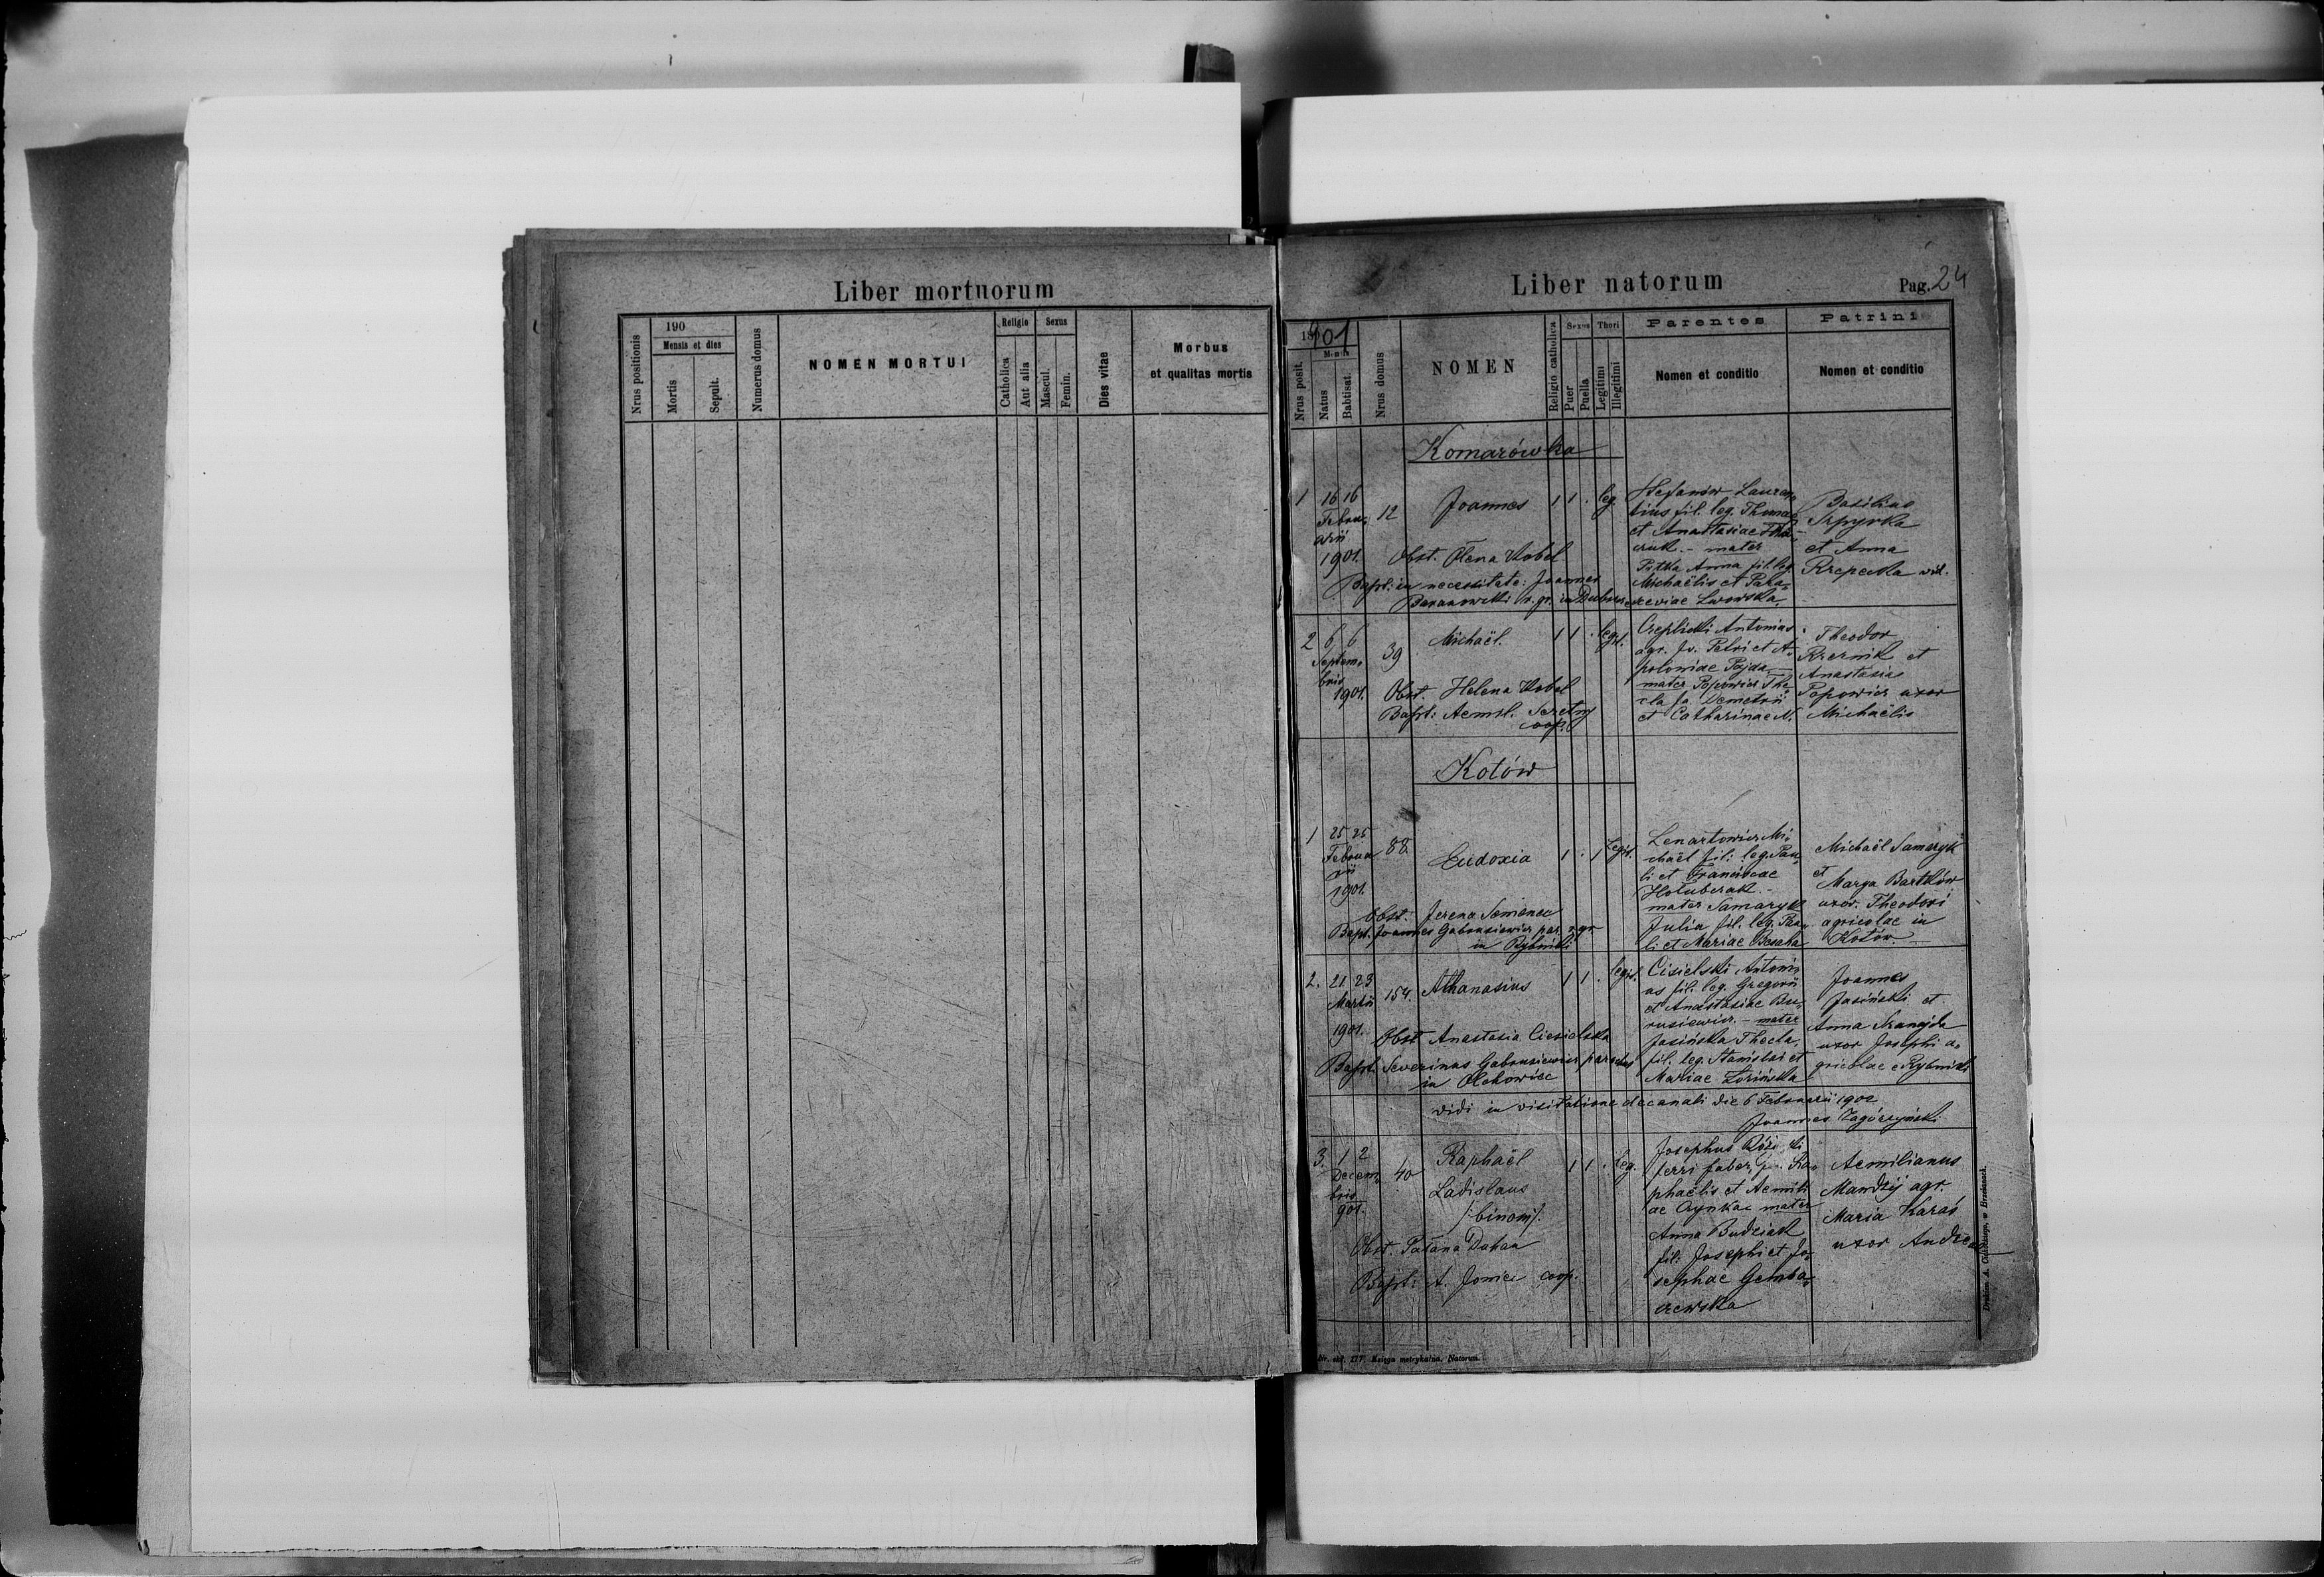 Liber mortuorum
Nrus positionis
190
Mensis et dies
Mortis
Sepult.
Numerus domus
NOMEN MORTUI
Religio
Catholica
Aut alia
Sexus
Mascul.
Femin.
Dies vitae
Morbus
et qualitas mortis
Liber natorum
Pag. 24
1901
Mensis
Nrus posit.
Natus
Babtisat.
Nrus domus
NOMEN
Religio catholica
Sexus
Puer
Puella
Thori
Legitimi
Illegitimi
Parentes
Nomen et conditio
Patrini
Nomen et conditio
Komarówka
1 16 16
Februarii
1901.
12
Joannes
1 1 . leg.
Obst. Olena Kobel
Bapt: in necessitate: Joannes
Baranowski r. gr. in
Stefanów Lauren
tius fil. leg. Thomae
et Anastasiae
mater
Anna fil. leg.
Michaëlis et Para
Lwowska
Basilius
et Anna
2 6 6
Septem
bris
1901.
39
Michaël.
1 1 . legit.
Obst. Helena Kobel
Bapt: Aemil.
coop.
Antonius
agr. fs. Petri et A
poloniae Pajda
mater Popowicz The
cla fa Demetrii
et Catharinae N.
Theodor
et
Anastasia
Popowicz uxor
Michaëlis
Kotów
1 25 25
Februa
rii
1901.
88
Eudoxia
1 . 1 Legit.
Obst. Semenec
Bapt. Joannes Gabrusiewicz par. r. gr.
in Rybniki
Lenartowicz Mi
chaël fil: leg. Pau
li et Franciscae
Hołuberak. -
mater Samaryk
Julia fil. leg. Pau
li et Mariae
Michaël Samaryk
et
Marya Bartków
uxor. Theodori
agricolae in
Kotów
2. 21 23
Martii
1901.
154.
Athanasius
1 1 . legit.
Obst Anastasia Ciesielska
Bapt: Severinus Gabrusiewicz parochus
in Olchowiec
Cisielski Antoni
us fil. leg. Gregorii
et Anastasiae Bu
rusiewicz. - mater
Jasińska Thecla,
fil. leg. Stanislai et
Mariae
Joannes
Jasiński et
Anna
uxor Josephi a
gricolae e Rybniki
Vidi in visitatione decanali die 6 Februarii 1902
Joannes Zagórzyński
3. 1 2
Decem
bris
901.
40
Raphaël
Ladislaus
/:binom:/.
1 1 . leg.
Obst. Dahan
Bapt: A. coop.
Josephus
ferri faber, Ra
phaëlis et Aemili
ae mater
Anna Budziak
fil: Josephi et Jo
sephae Gemba
rzewska
Aemilianus
Mandzij agr.
Maria Karaś
uxor
Nr. skł. 177. Księga metrykalna. Natorum.